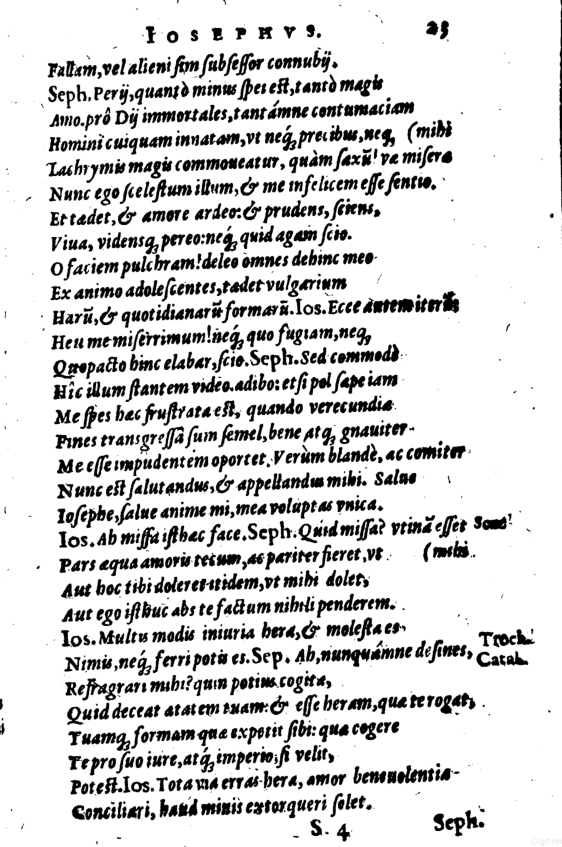 IOSEPHVS. 25
Factam, vel alieni sim subsessor connubij.
Seph. Perij, quantò minus spei est, tantò magis
Amo. prô Dij immortales, tantámne contumaciam
Homini cuiquam innatam, vt neq́; precibus, neq; (mihi
Lachrymis magis commoueatur, quàm saxũ! væ misera
Nunc ego scelestum illum, & me infelicem esse sentio.
Et tædet, & amore ardeo: & prudens, sciens,
Viua, vidensq́; pereo: neq́; quid agam scio.
O faciem pulchram! deleo omnes dehinc meo
Ex animo adolescentes, tædet vulgarium
Harũ, & quotidianarũ formarũ. Ios. Ecce autem iterũ;
Heu me miserrimum! neq́; quo fugiam, neq;
Quo pacto hinc elabar, scio. Seph. Sed commodè
Hîc illum stantem video. adibo: etsi pol sæpe iam
Me spes hæc frustrata est, quando verecundiæ
Fines transgressã sum semel, bene atq́; gnauiter
Me esse impudentem oportet. Verùm blandè, ac comiter
Nunc est salutandus, & appellandus mihi. Salue
Iosephe, salue anime mi, mea voluptas vnica.
Ios. Ah missa isthæc face. Seph. Quid missa? vtinã esset Sene!
Pars æqua amoris tecum, ac pariter fieret, vt (mihi
Aut hoc tibi doleret itidem, vt mihi dolet,
Aut ego isthuc abs te factum nihili penderem.
Ios. Multis modis iniuria hera, & molesta es
Nimis, neq́; ferri potis es. Sep. Ah, nunquámne desines, Troch.
Catal.
Refragrari mihi? quin potius cogita,
Quid deceat ætatem tuam: & esse heram, quæ te rogat,
Tuamq́; formam quæ expetit sibi: quæ cogere
Te pro suo iure, atq́; imperio, si velit,
Potest. Ios. Tota via erras hera, amor beneuolentia
Conciliari, haud minis extorqueri solet.
S. 4 Seph.